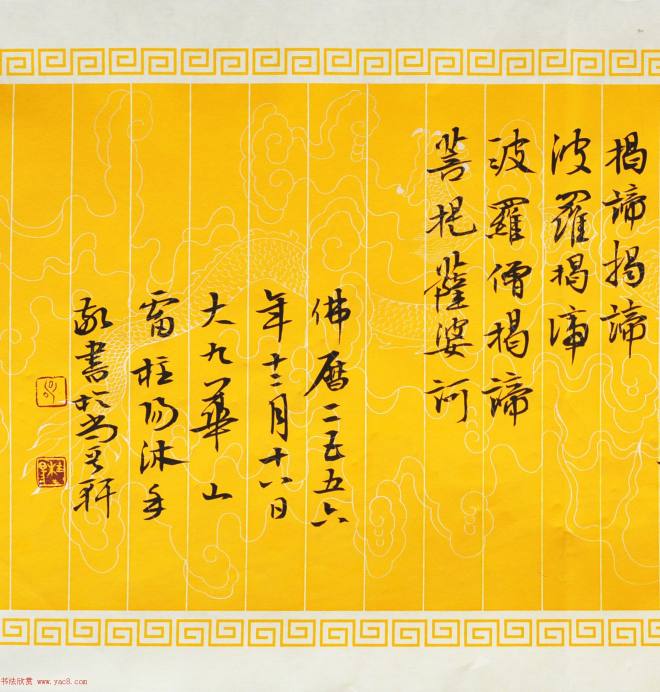 揭諦揭諦
波羅揭諦
波羅僧揭諦
菩提薩婆訶
佛曆二五五六
年十二月十八日
大九華山
雷柱陽沐手
敬書於尚軒
书法欣赏 www.yac8.com